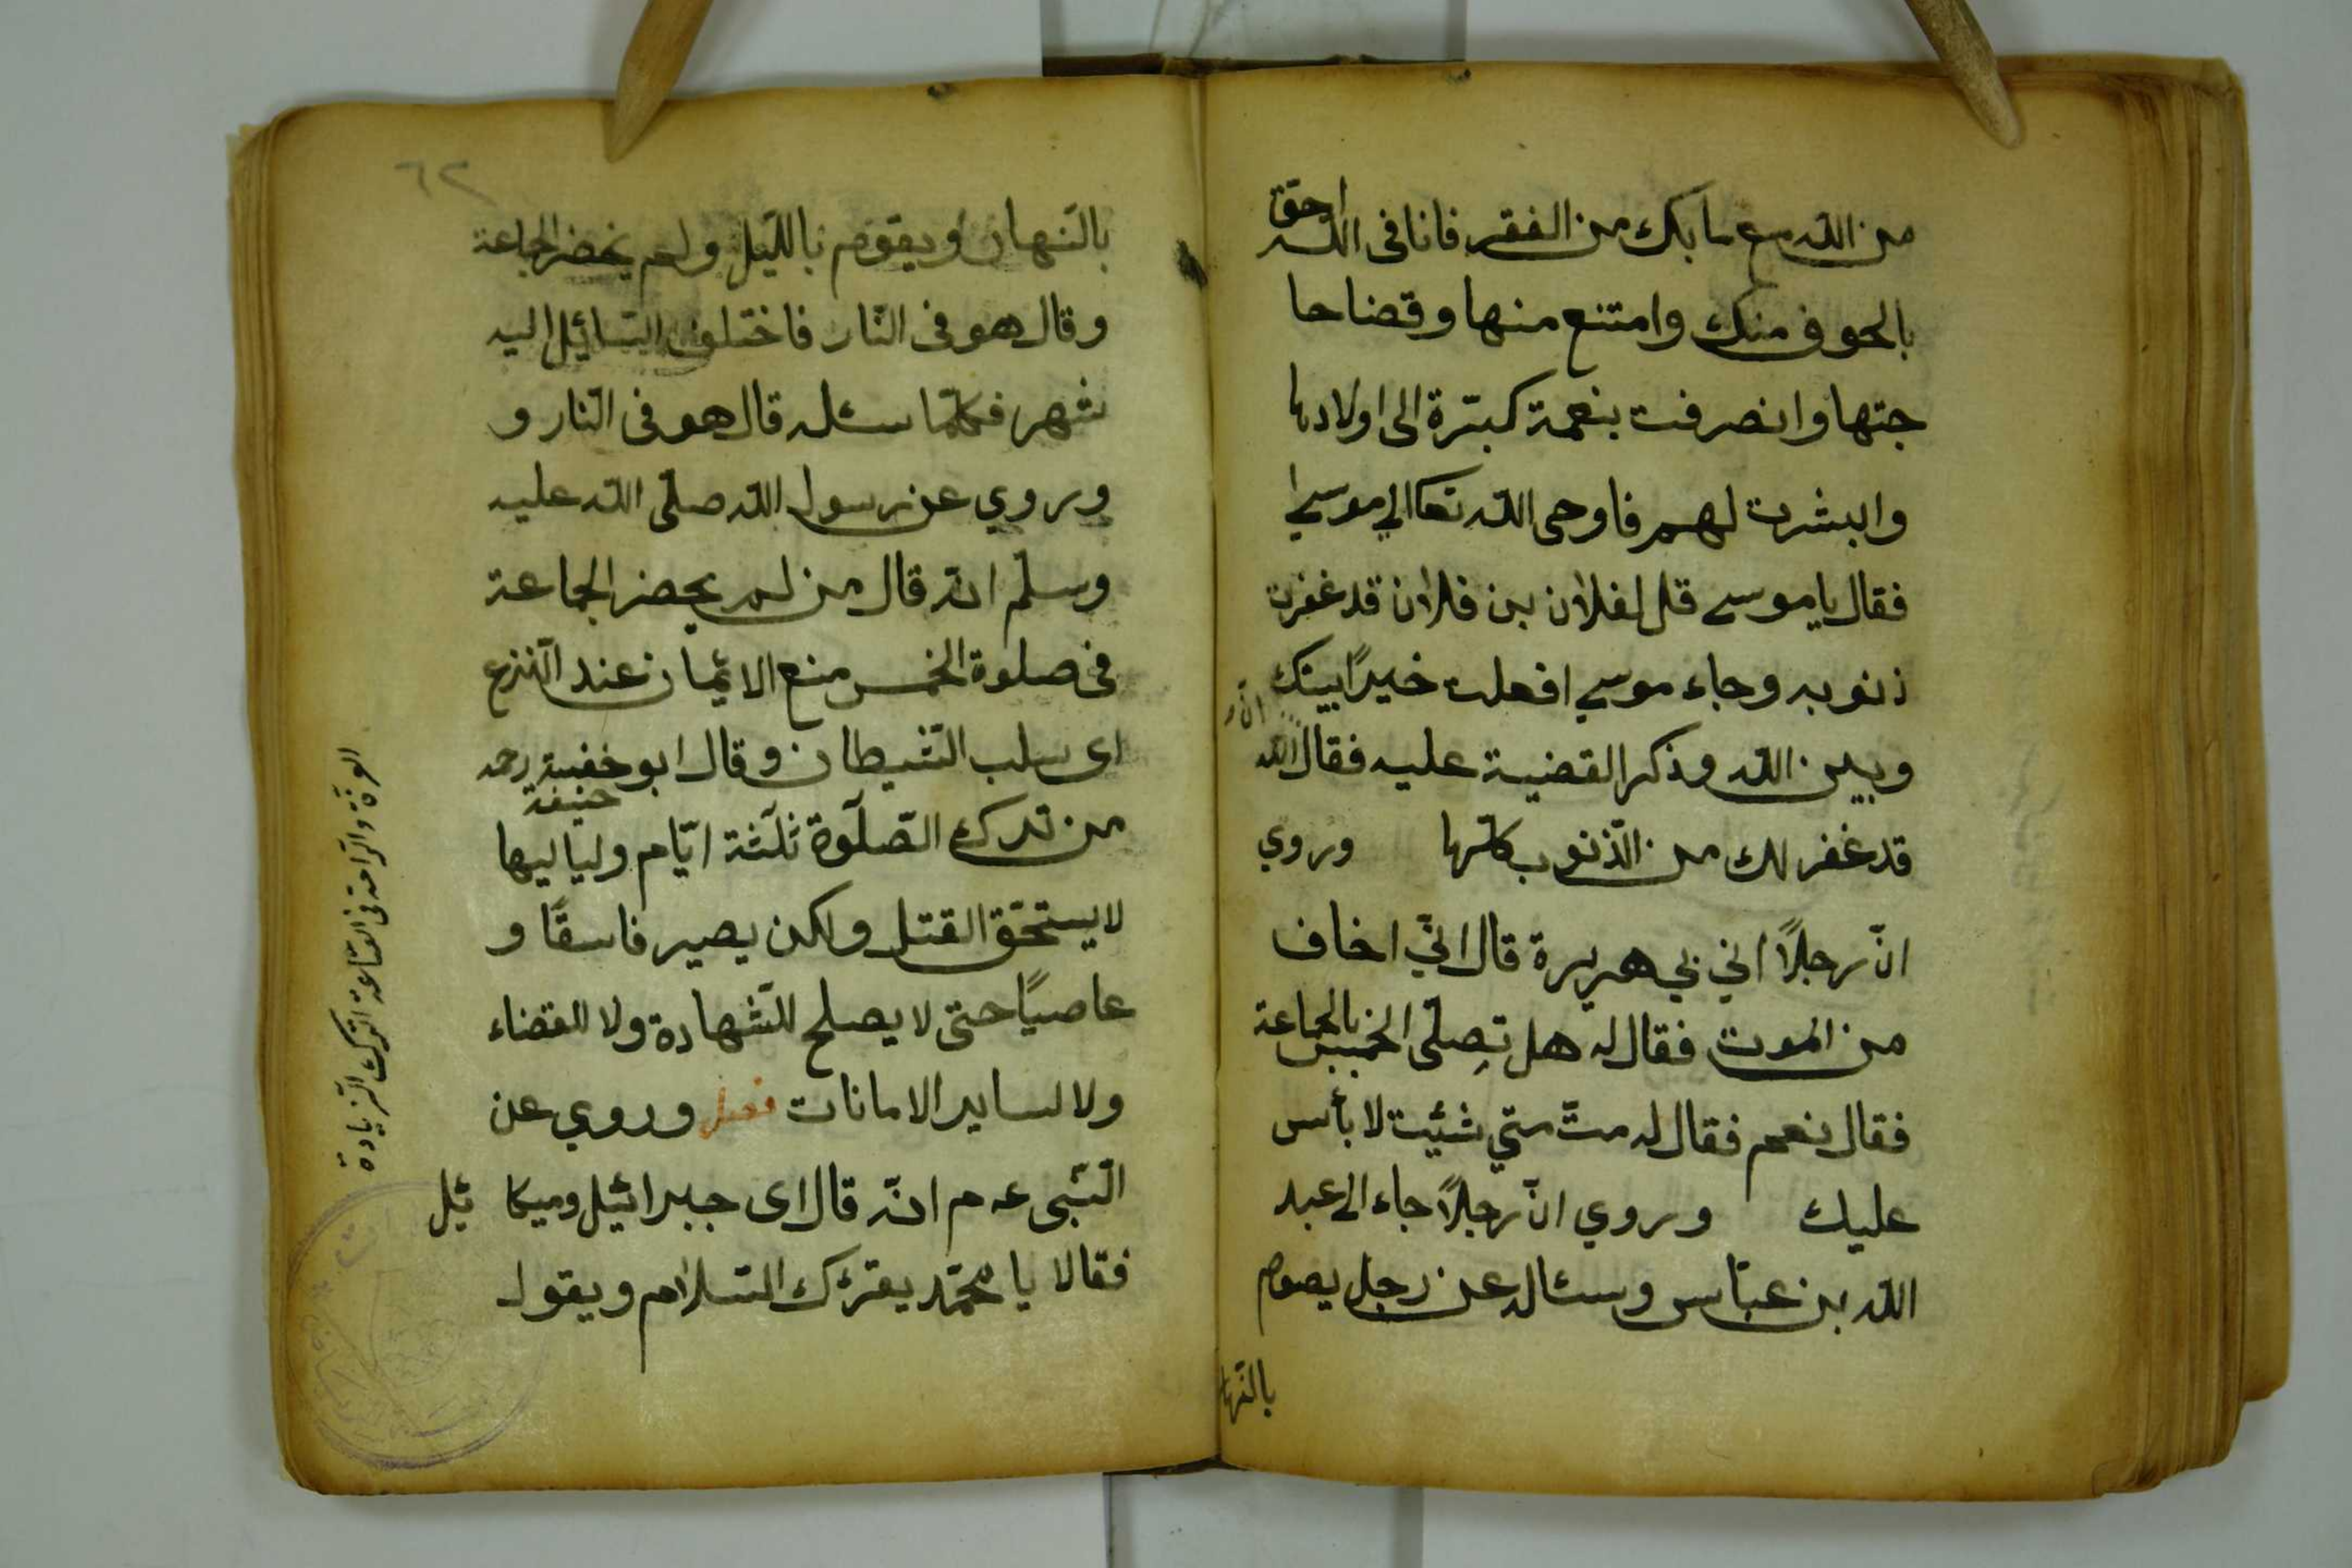 من الله مع ما بك من الفقر فانا فى الله احق
بالحوف منك وامتنع منها وقضا حا
جتها وانصرفت بنعمة كبترة الى اولادها
والبشرت لهم فاوحى الله تعا الى موسى
فقال يا موسى قل لفلان بن فلان قد غفرت
ذنوبه وجاء موسى افعلت خيرًا بينك
وبين الله وذكر القضية عليه فقال الله
انّ
قد غفر لك من الذّنوب كلّها وروي
انّ رجلًا اتي بي هريرة قال انّي اخاف
من الموت فقال له هل تصلّى الخميس بالجماعة
فقال نعم فقال له متّ متي شئيت لا بأس
عليك وروي انّ رجلًا جاء الى عبد
الله بن عبّاس وسئاله عن رجل يصوم
بالنّها
٦٢
بالنّهار ويقوم بالليّل ولم يحضر الجماعة
وقال هو فى النّار فاختلوف السّائيل اليه
شهر فكلّما سئله قال هو فى النّار و
وروي عن رسول الله صلّى الله عليه
وسلّم انّه قال من لم يحضر الجماعة
فى صلوة الخمس منع الائيمان عند النّزع
اى سلب الشّيطان وقال ابو خفيية رحمه
حنيفة
من ترك الصّلوة ثلثة ايّام ولياليها
لا يستحقّ القتل ولكن يصير فاسقًا و
عاصيًا حتى لا يصلح للشّهادة ولا للقضاء
ولا لساير الامانات فصل وروي عن
النّبى عم انّه قال اى جبرائيل وميكا ئيل
فقالا يا محمّد يقرئك السّلام ويقول
والرّاحة فى القناعة الترك الزيادة